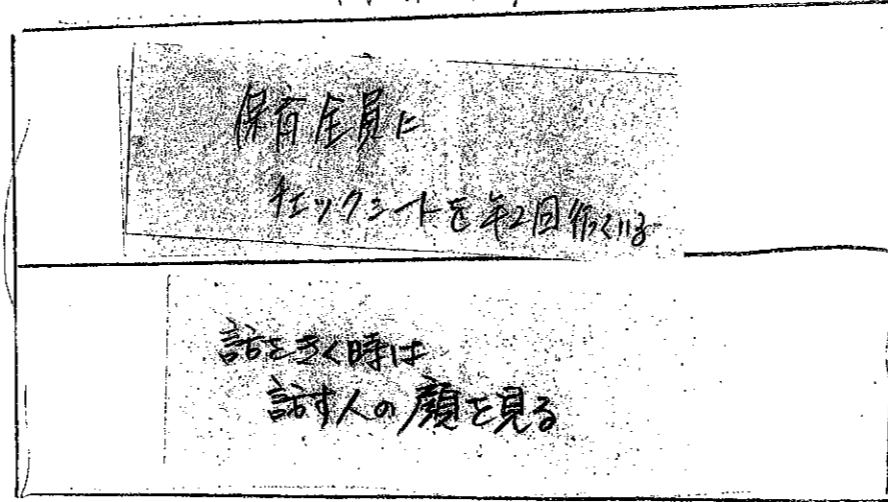 保育全員に
チェックシートを年2回行っている
話をきく時は
話す人の顔を見る